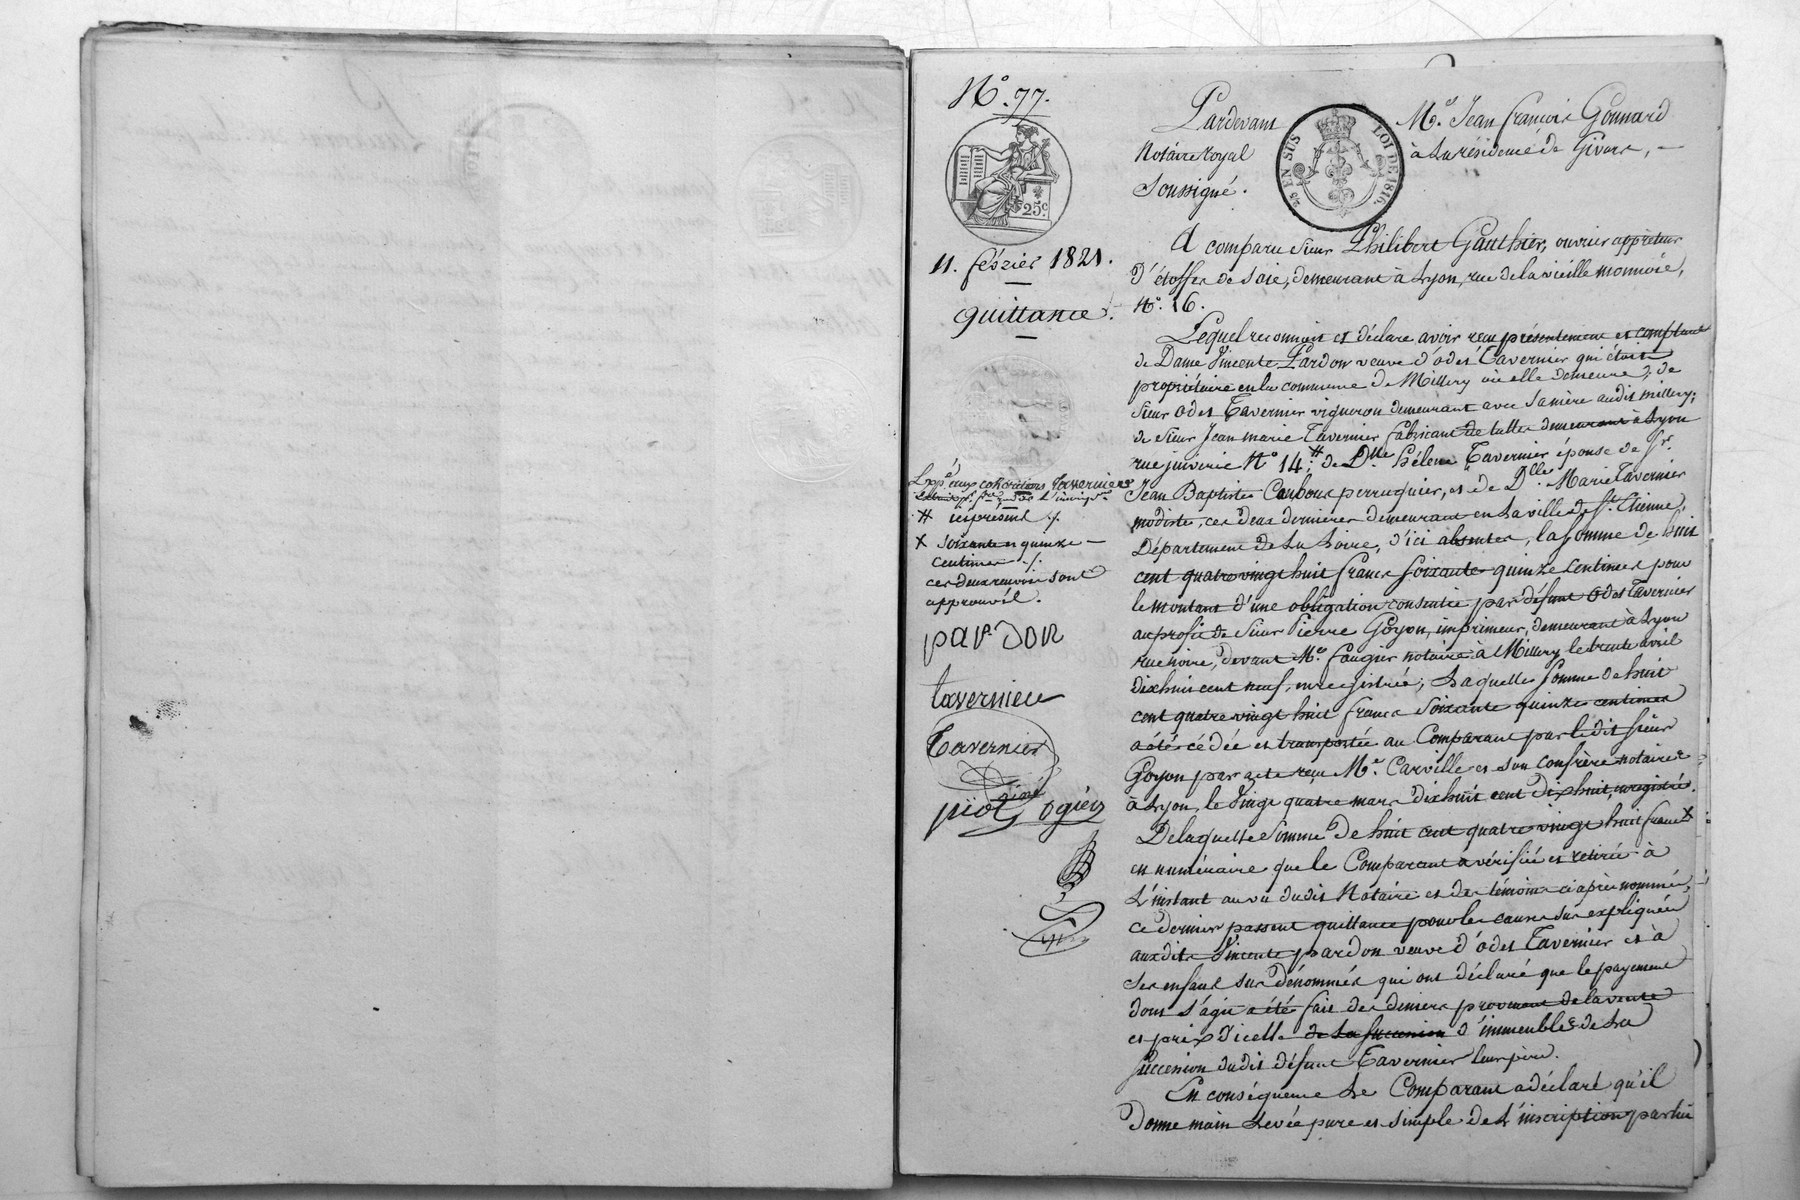 N.° 77.
25 c.
11. février 1821.
quittance.
25 EN SUS
LOI DE 1816.
Pardevant M.e Jean François Gonnard
Notaire royal à La résidence de Givors, —
Soussigné.
A comparu sieur Philibert Gauthier, ouvrier appreteur
D'étoffes de soie, demeurant à Lyon, rue de la vieille monnoie,
N.° 16.
Lequel reconnait et déclare avoir reçu présentement et comptant
de Dame Vincente Pardon veuve d'odet Tavernier qui étoit
propriétaire en la commune de Millery où elle demeure; de
sieur Odet Tavernier vigneron demeurant avec sa mère audit millery;
de sieur Jean marie Tavernier fabricant de tulles demeurant à Lyon
rue juiverie N° 14; # de D.lle hélène Tavernier épouse de S.r
Jean Baptiste perruquier, et de D.lle Marie Tavernier
modiste, ces deux dernières demeurant en La ville de S.t Etienne,
Département de La Loire, d'ici absentes, la somme de huit
cent quatre vingt huit francs soixante quinze centimes pour
le montant d'une obligation consentie par défunt Odet Tavernier
au profit de sieur Pierre Goyon, imprimeur, demeurant à Lyon
rue noire, devant M.e fougier notaire à Millery le trente avril
dix huit cent neuf, enregistrée; Laquelle somme de huit
cent quatre vingt huit francs soixante quinze centimes
a été cédée et transportée au Comparant par ledit sieur
Goyon par acte reçu M.e Carville et son confrère notaires
à Lyon, le vingt quatre mars dix huit cent dix huit, enregistré.
De laquelle somme de huit cent quatre vingt huit francs X
en numéraire que le Comparant a vérifiée et retirée à
L'instant au vu dudit Notaire et des témoins ci après nommés,
ce dernier passent quittance pour les causes sus expliquées
auxdits Vincente pardon veuve d'odet Tavernier et à
ses enfans sus dénommés qui ont déclaré que le payement
dont s'agit a été fait des deniers provenant de la vente
et prix d'icelle de La succession d'immeubles de La
succession dudit défunt Tavernier leur père.
En conséquence Le Comparant a déclaré qu'il
donne main Levée pure et simple de L'inscription par lui
aux cohéritiers Taverniers
# ici présent ./.
X soixante et quinze —
centimes ./.
ces deux renvois sont
approuvés.
pardon
tavernier
Tavernier
piot ogier